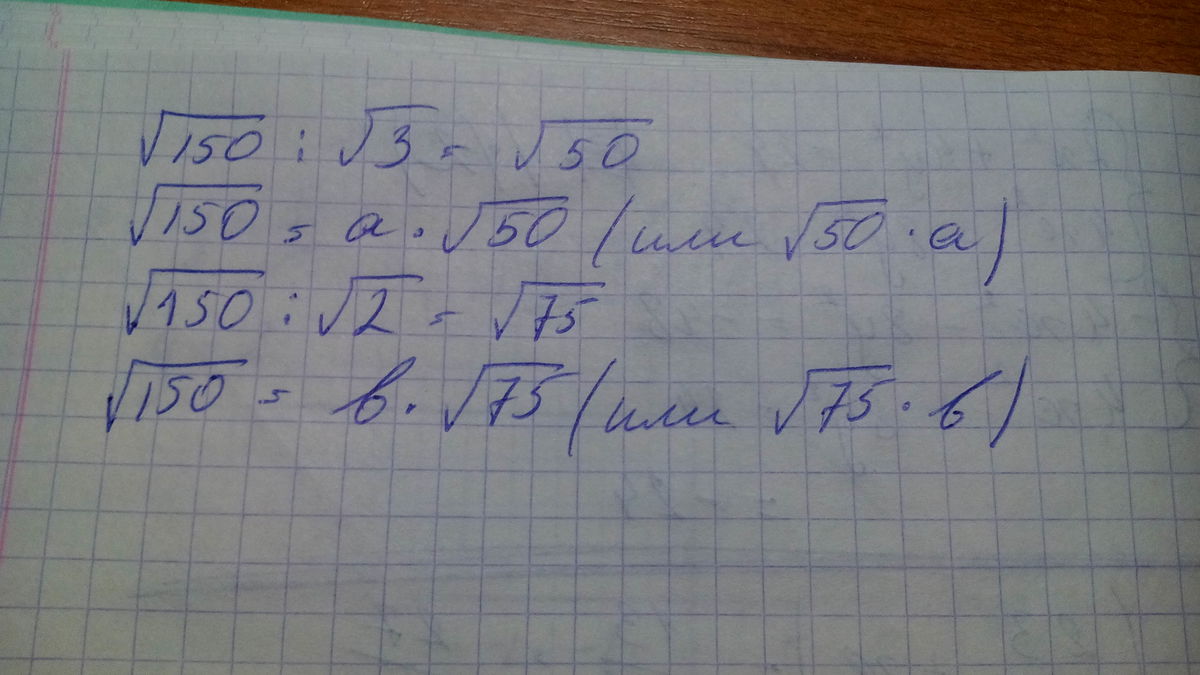 √150 : √3 = √50
√150 = a · √50 (или √50 · a)
√150 : √2 = √75
√150 = b · √75 (или √75 · b)